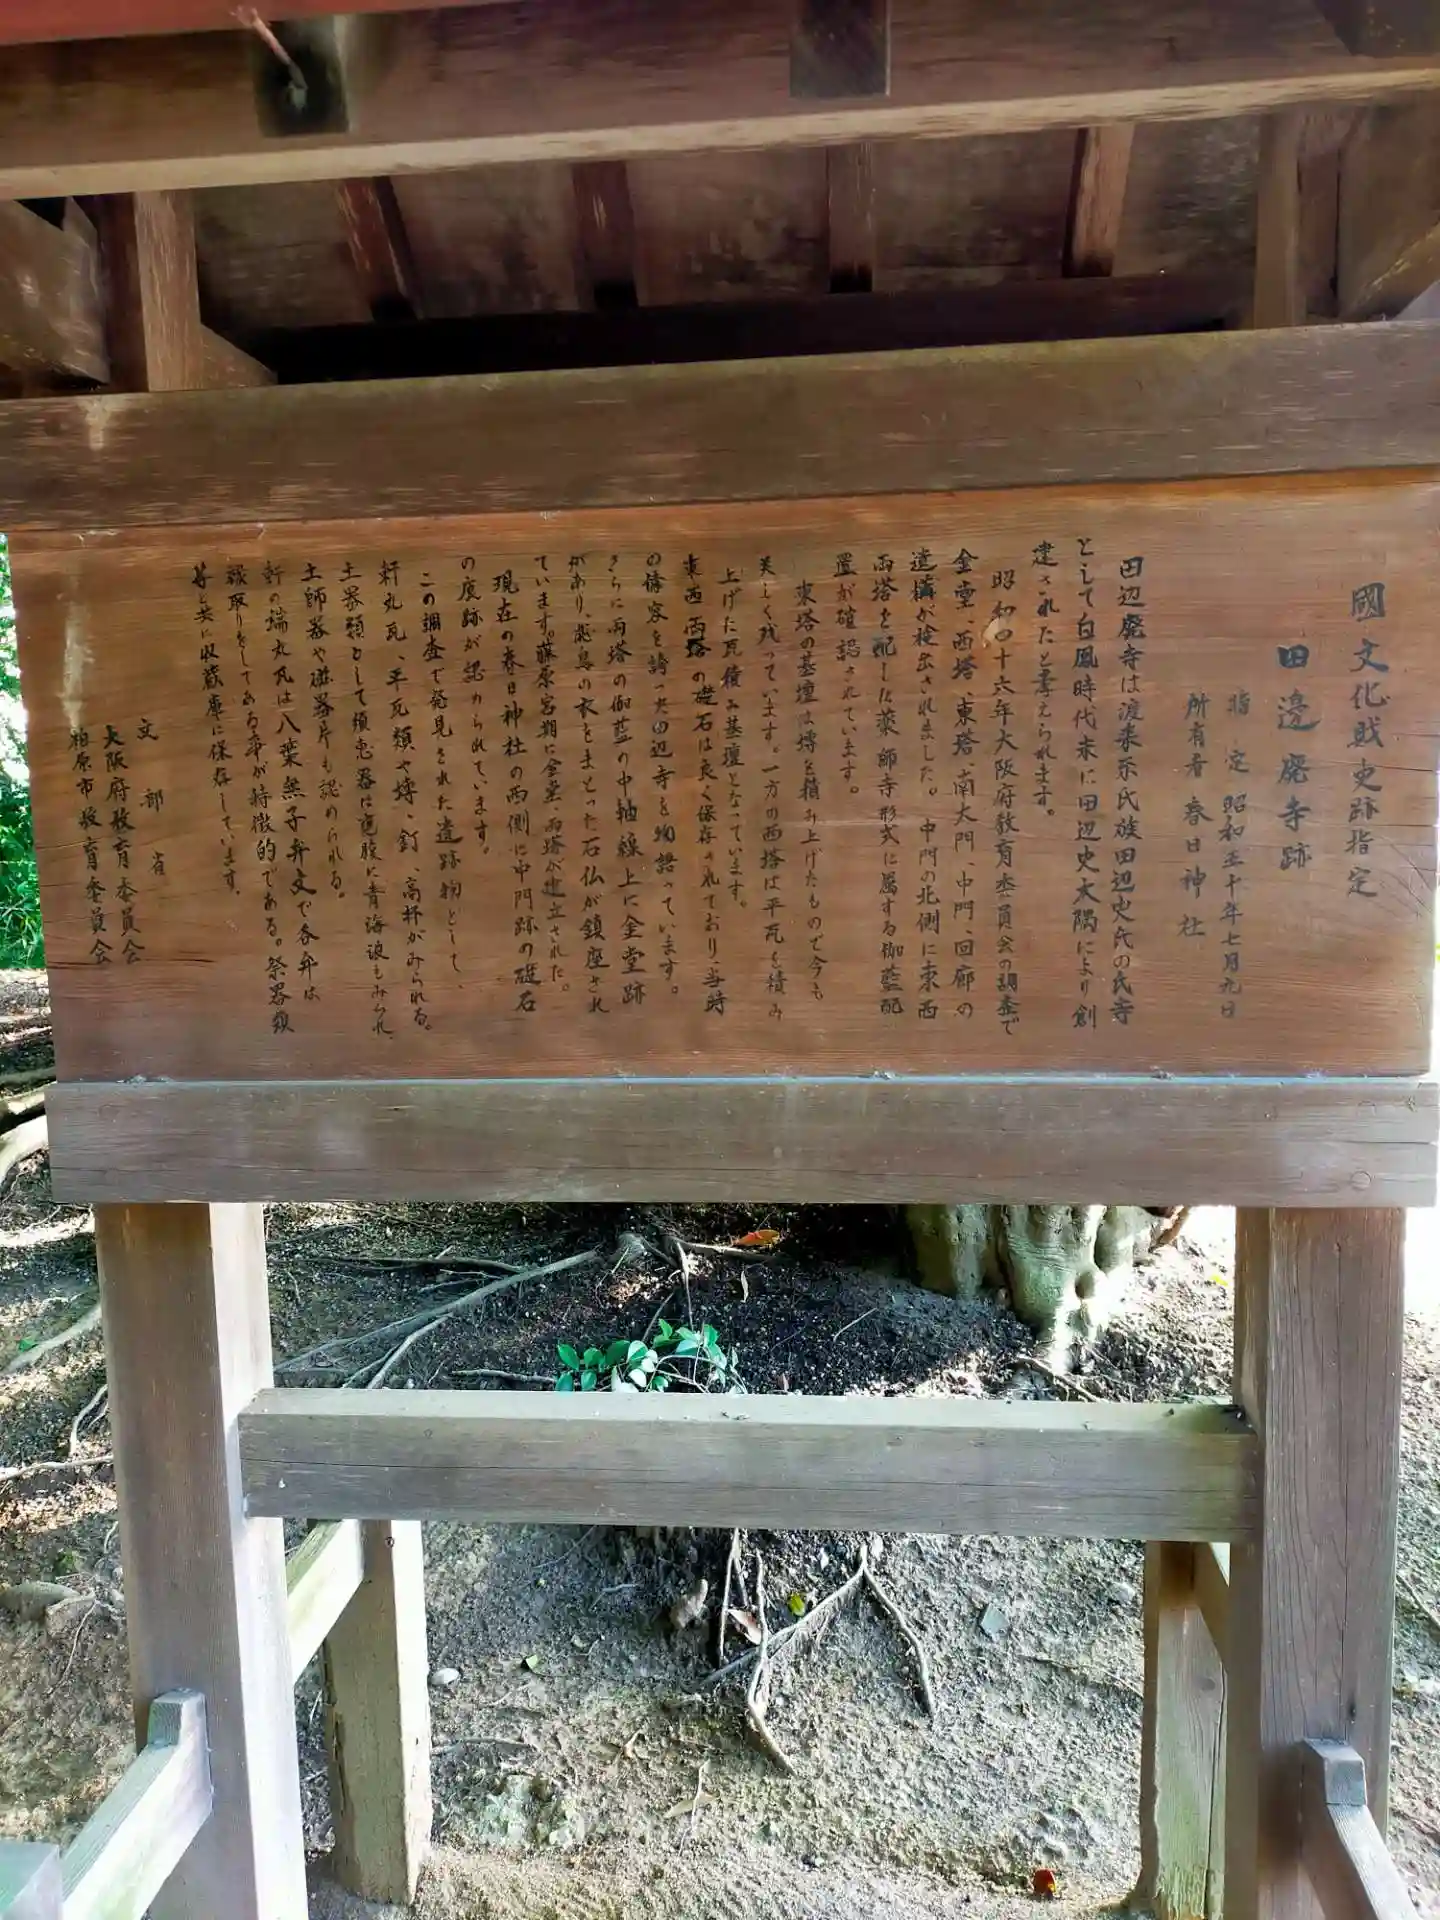 國文化財史跡指定
田邊廃寺跡
指定 昭和五十年七月九日
所有者 春日神社
田辺廃寺は渡来系氏族田辺史氏の氏寺
として白鳳時代末に田辺史大隅により創
建されたと考えられます。
昭和四十六年大阪府教育委員会の調査で
金堂、西塔、東塔、南大門、中門、回廊の
遺構が検出されました。中門の北側に東西
両塔を配した薬師寺形式に属する伽藍配
置が確認されています。
東塔の基壇は塼を積み上げたもので今も
美しく残っています。一方の西塔は平瓦を積み
上げた瓦積み基壇となっています。
東西両塔の礎石は良く保存されており、当時
の偉容を誇った田辺寺を物語っています。
さらに両塔の伽藍の中軸線上に金堂跡
があり、飛鳥の衣をまとった石仏が鎮座され
ています。藤原宮期に金堂、両塔が建立された。
現在の春日神社の西側に中門跡の礎石
の痕跡が認められています。
この調査で発見された遺跡物として、
軒丸瓦、平瓦類や塼、釘、高杯がみられる。
土器類として須恵器は甕腹に青海波もみられ、
土師器や磁器片も認められる。
軒の端丸瓦は八葉無子弁文で各弁は
縁取りをしてある事が特徴的である。祭器類
等と共に収蔵庫に保存しています。
文部省
大阪府教育委員会
柏原市教育委員会